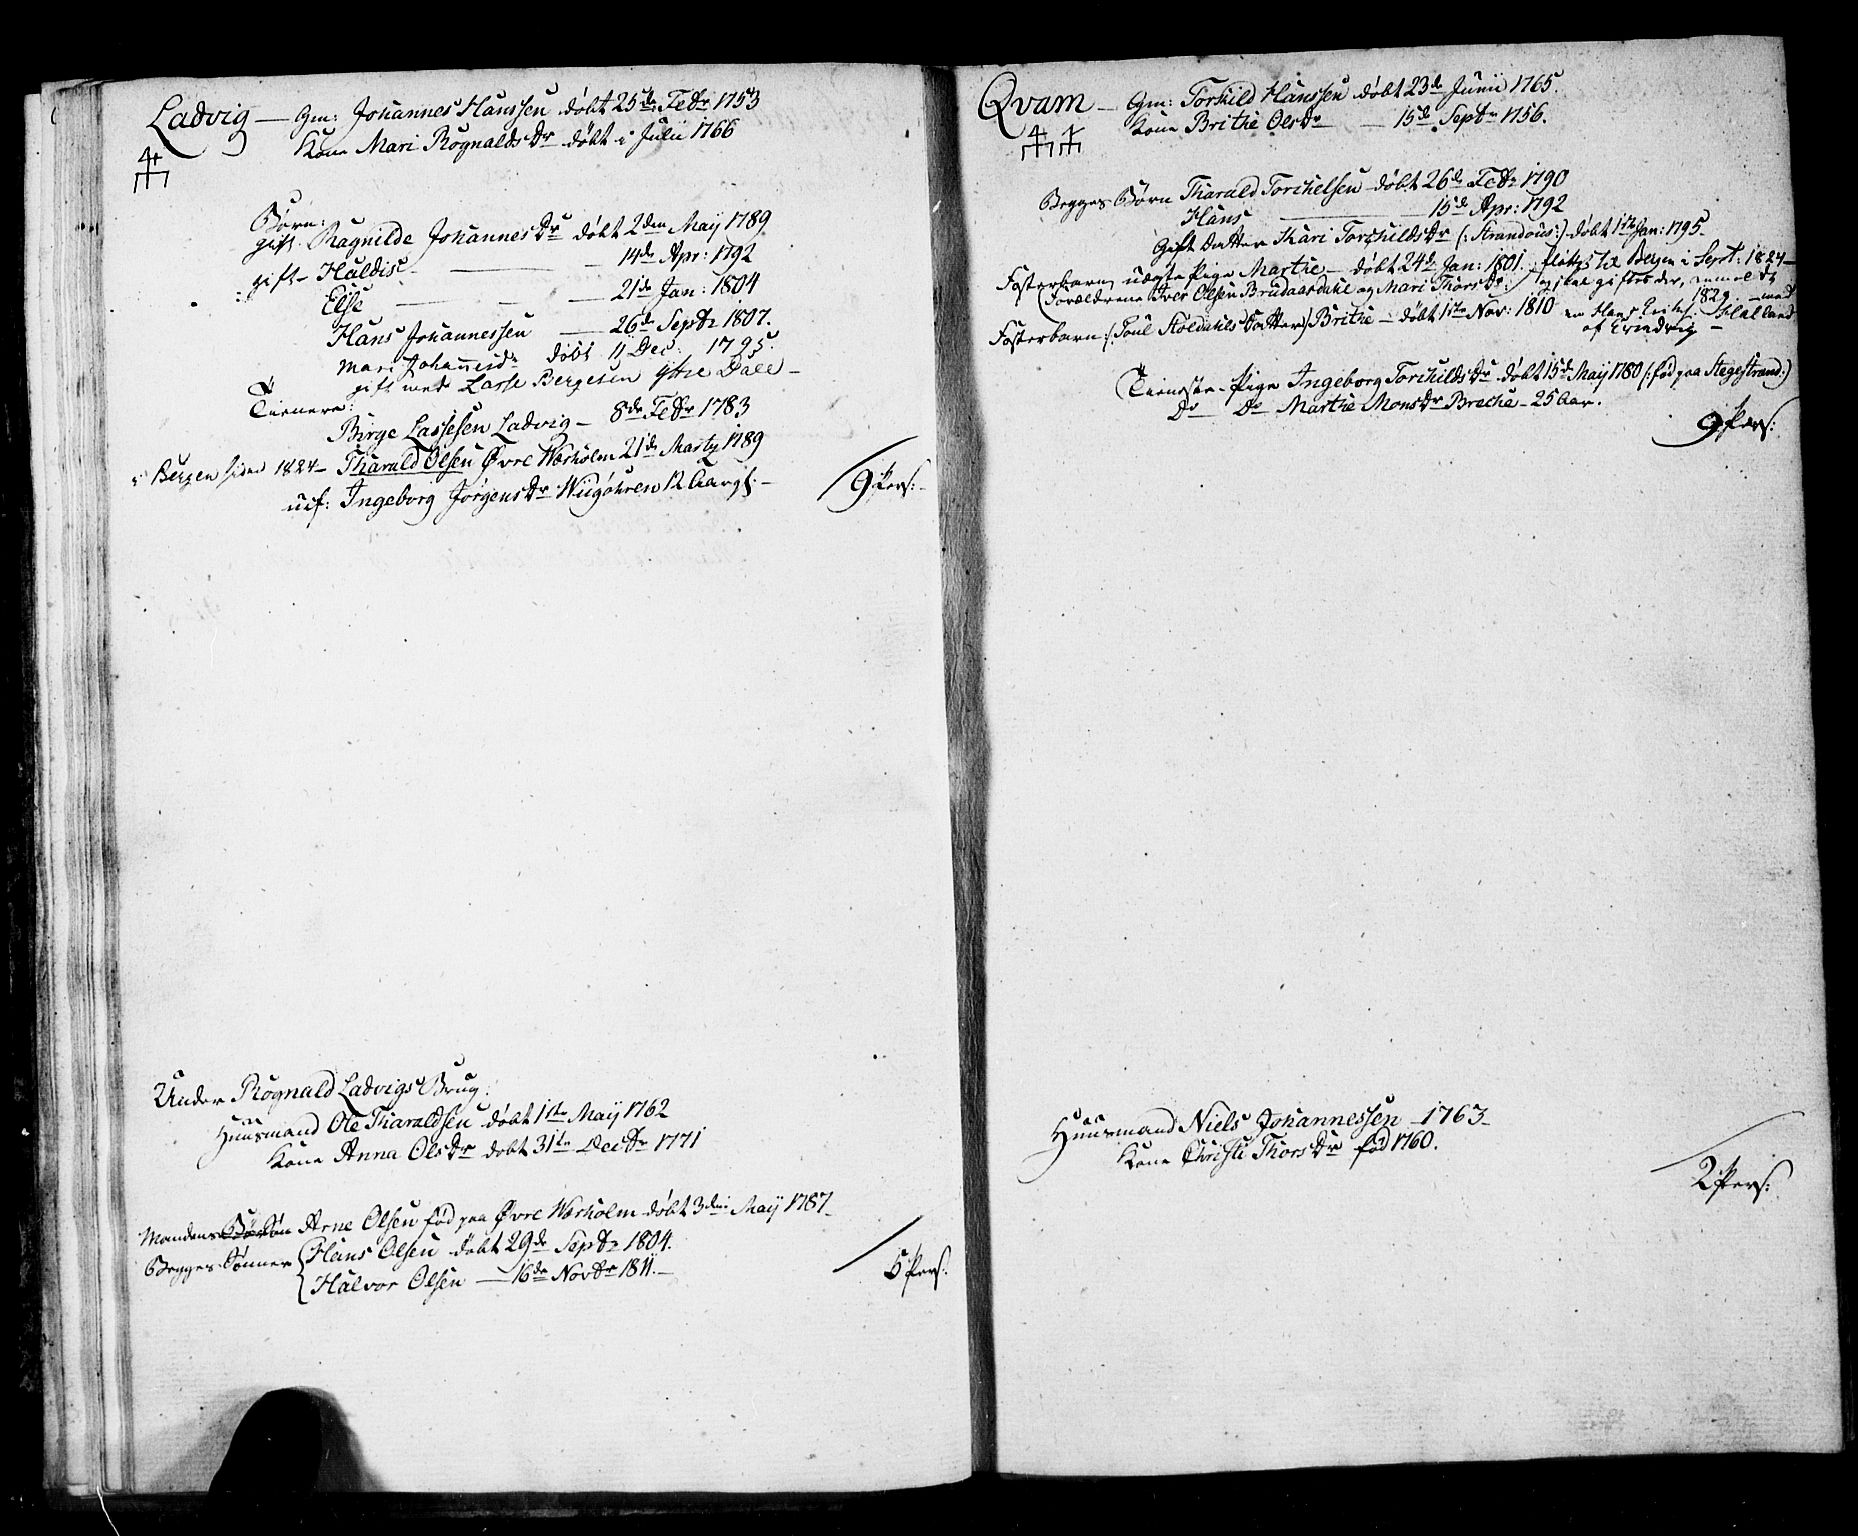 Ladvig — Gm: Johannes Hanssen døbt 25de Febr 1753
Kone Mari Rognalds Dr døbt i Julii 1766
Børn:
gift Ragnilde Johannes Dr døbt 2den May 1789
gift – Huldise — 14de Apr: 1792
Else — 21de Jan: 1804
Hans Johannessen — 26de Septr 1807.
Mari Johannisdr døbt 11 Dec: 1795.
gift med Lasse Bergesen ytre Dale –
Tienere:
Birge Lassesen Ladvig – 8de Febr 1783
i Bergen siden 1824 – Tharald Olsen Øvre Værholm 21de Martz 1789
uef: Ingeborg Jørgens Dr 12 Aar gl: –
9 Pers: –
Under Rognald Ladvigs Brug:
Huusmand Ole Tharaldsen døbt 1ste May 1762
Kone Anna Ols Dr døbt 31te Decbr 1771
Mandens Søn Arne Olsen fød paa Øvre Værholm døbt 3den May 1787 –
Begges Sønner Hans Olsen døbt 29de Septbr 1804.
Halvor Olsen — 16de Novbr 1811. –
5 Pers:
Qvam – Gm: Torkild Hanssen døbt 23de Junii 1765.
Kone Brithe Ols Dr — 15de Septr 1756.
Begges Børn Tharald Torchelsen døbt 26de Febr 1790
Hans — 15de Apr: 1792
Gift Datter Kari Torchilds Dr (: Strandous :) døbt 1te Jan: 1795 –
Fosterbarn uægte Pige Marthe – døbt 24de Jan: 1801. fløttes til Bergen i Sept: 1824 –
(Forældrene Iver Olsen Brudaasdahl og Mari Thors Dr. og skal giftes der, anmeldt
1829 – med
Fosterbarn: (Poul Stoldahls Datter) Brithe – døbt 1ste Nov: 1810 en Hans Halland
af Eindvig –
Tieneste-Pige Ingeborg Torchilds Dr døbt 15de May 1780 (: fød paa Stegestrand :)
Do Do Marthe Mons Dr Breche – 25 Aar.
9 Pers:
Huusmand Niels Johannessen – 1763 –
Kone Christi Thors Dr fød 1760.
2 Pers: